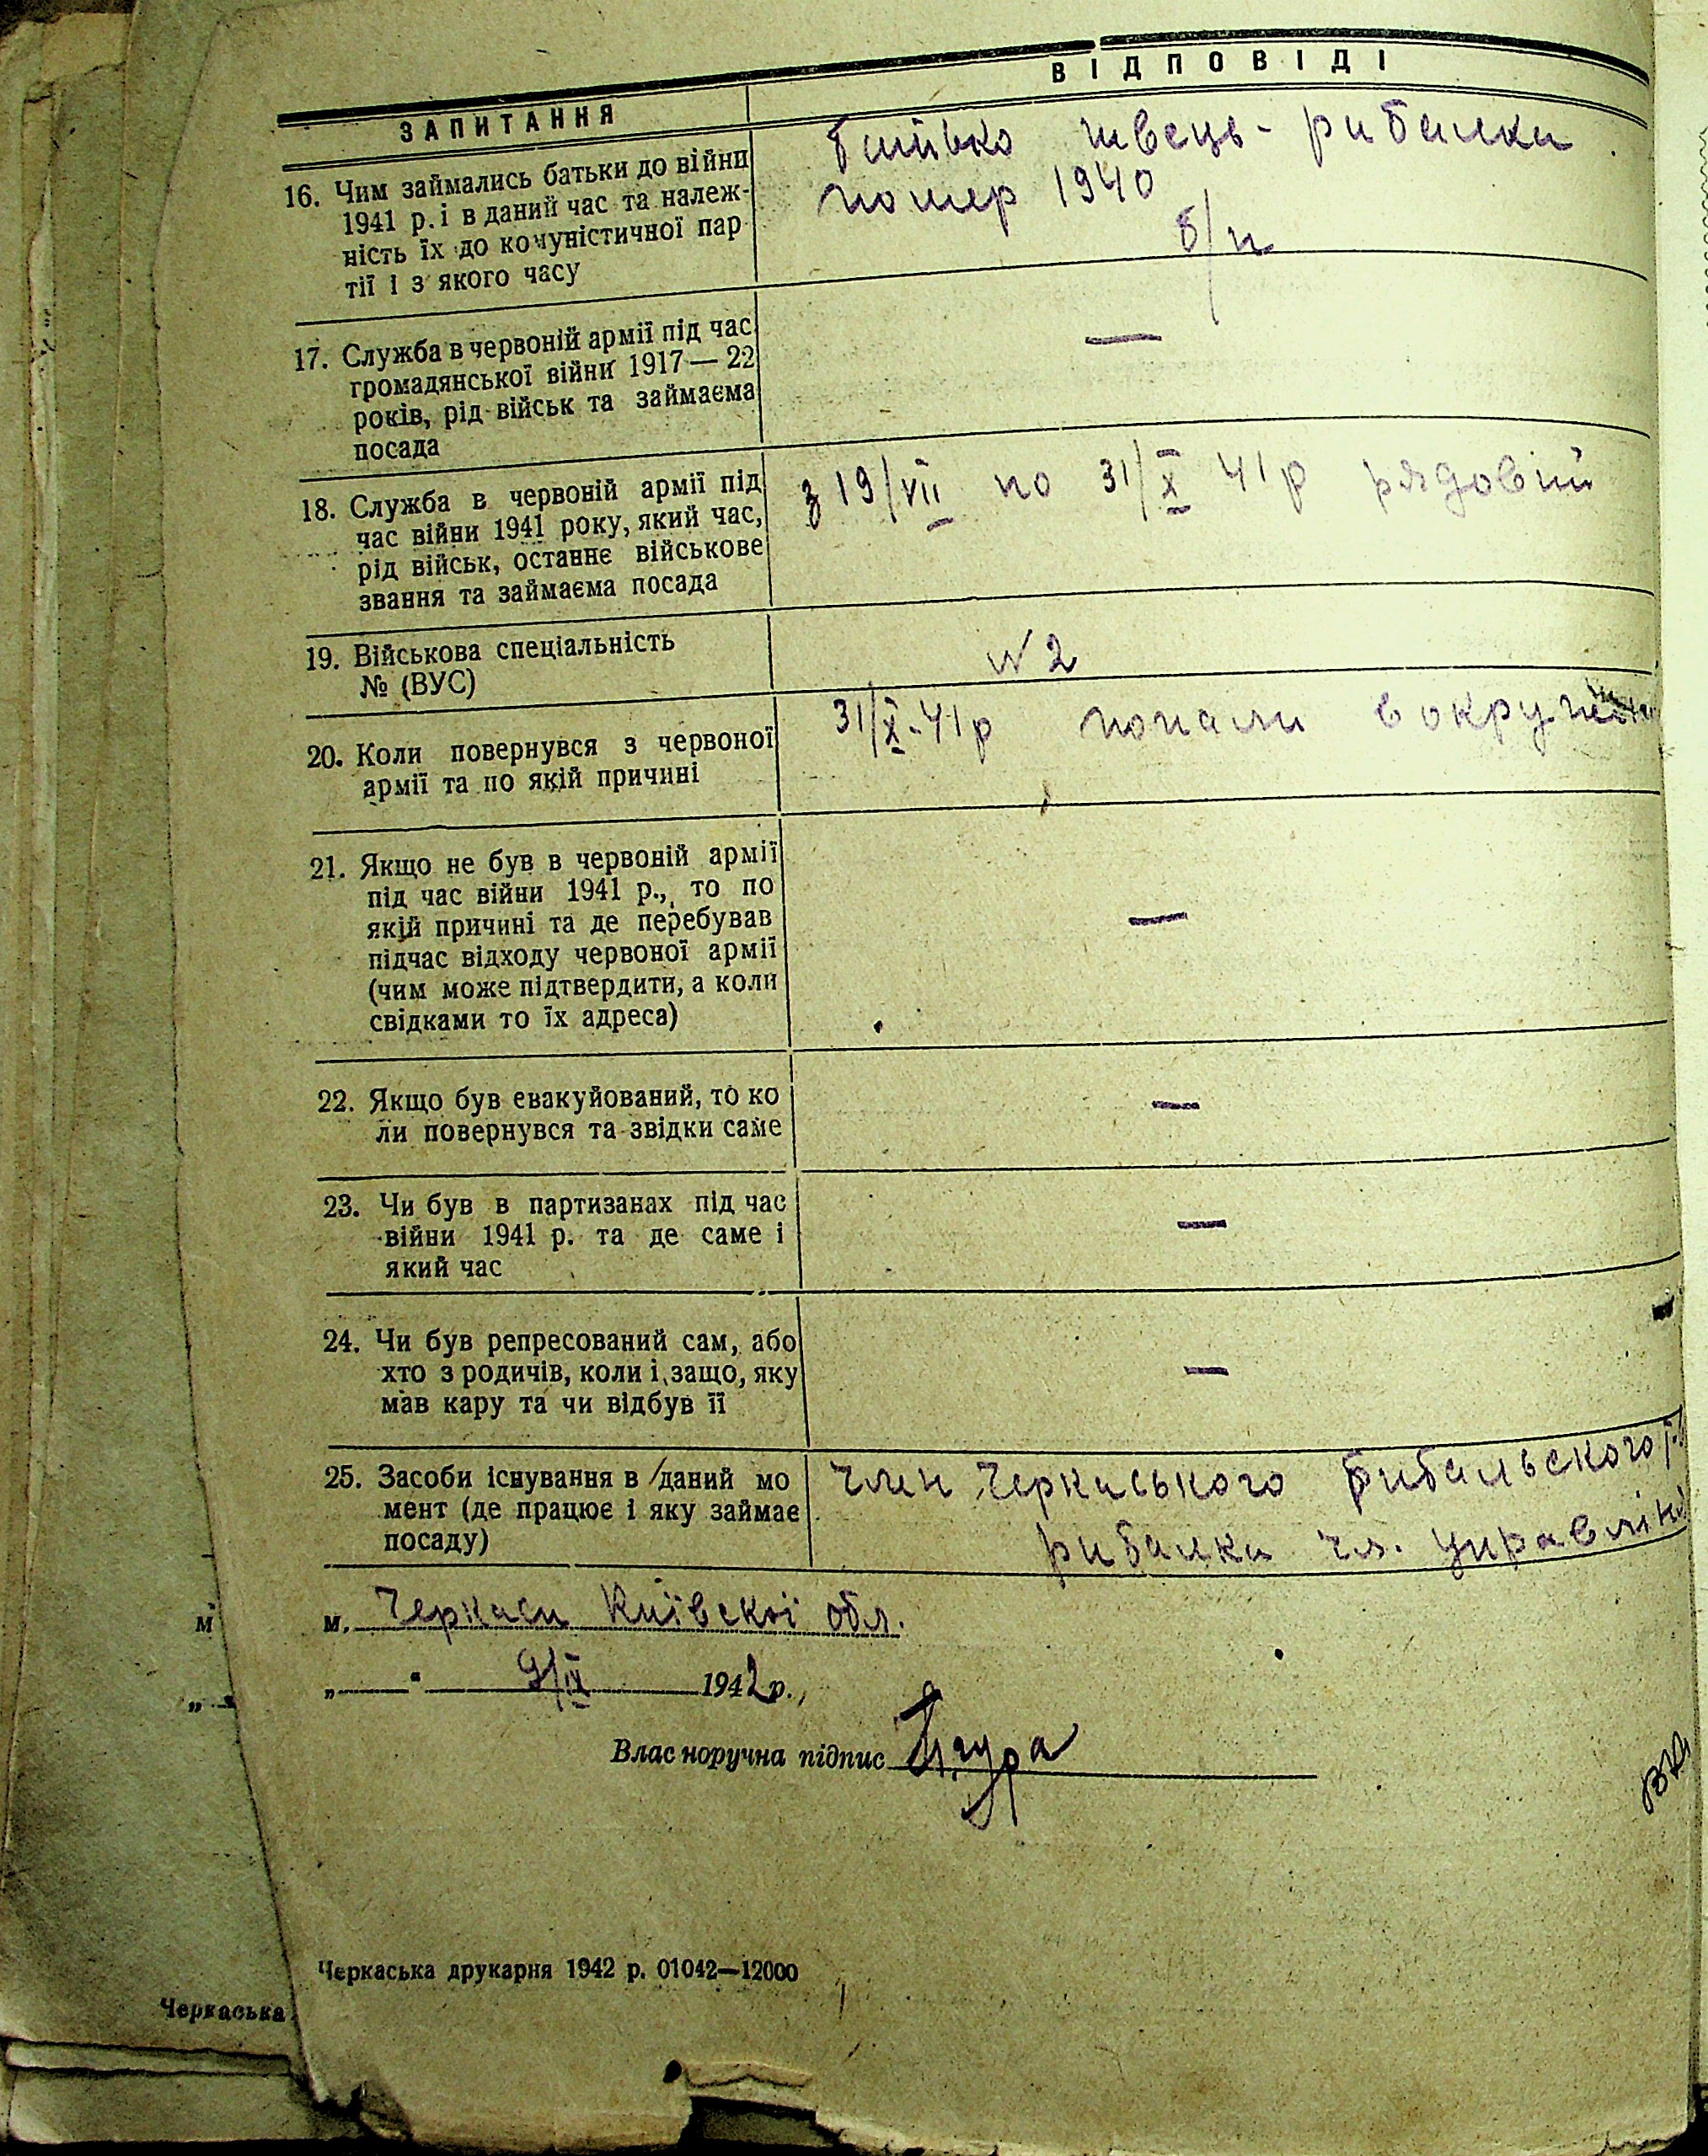 ЗАПИТАННЯ
ВІДПОВІДІ
16. Чим займались батьки до війни
1941 р. і в даний час та належ-
ність їх до комуністичної пар
тії і з якого часу
батько швець - рибалка
помер 1940
б/п
17. Служба в червоній армії під час
громадянської війни 1917—22
років, рід військ та займаєма
посада
—
18. Служба в червоній армії під
час війни 1941 року, який час,
рід військ, останнє військове
звання та займаєма посада
з 19/VII по 31/X 41р рядовий
19. Військова спеціальність
№ (ВУС)
№ 2
20. Коли повернувся з червоної
армії та по якій причині
31/X-41р попали в
21. Якщо не був в червоній армії
під час війни 1941 р., то по
якій причині та де перебував
підчас відходу червоної армії
(чим може підтвердити, а коли
свідками то їх адреса)
—
22. Якщо був евакуйований, то ко
ли повернувся та звідки саме
—
23. Чи був в партизанах під час
війни 1941 р. та де саме і
який час
—
24. Чи був репресований сам, або
хто з родичів, коли і защо, яку
мав кару та чи відбув її
—
25. Засоби існування в даний мо
мент (де працює і яку займає
посаду)
член Черкаського рибальського
рибалка чл.
м. Черкаси Київскої обл.
„——“ 9/IX 1942р.,
Власноручна підпис
Черкаська друкарня 1942 р. 01042—12000
м
„
Черкаська